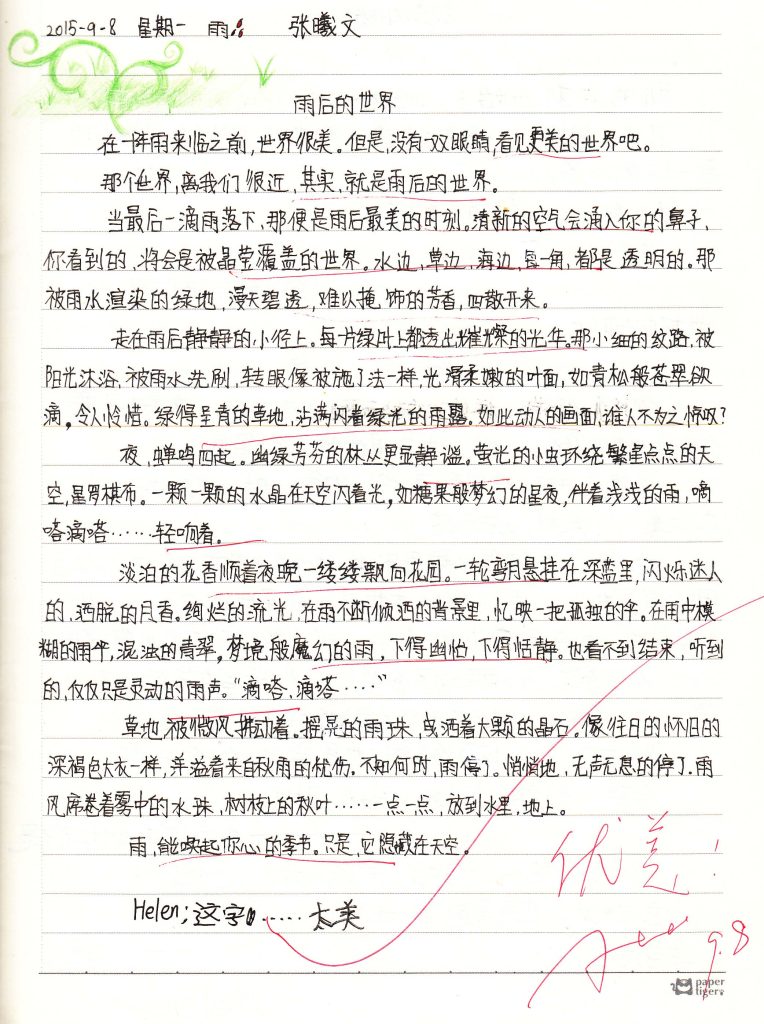 2015-9-8 星期一 雨 张曦文
雨后的世界
在一阵雨来临之前,世界很美。但是,没有一双眼睛,看见更美的世界吧。
那个世界,离我们很近,其实,就是雨后的世界。
当最后一滴雨落下,那便是雨后最美的时刻。清新的空气会涌入你的鼻子,
你看到的,将会是被晶莹覆盖的世界。水边,草边,海边,每一角,都是透明的。那
被雨水渲染的绿地,漫天碧透,难以掩饰的芳香,四散开来。
走在雨后静静的小径上。每一片绿叶上都透出璀璨的光华。那小细的纹路,被
阳光沐浴,被雨水洗刷,转眼像被施了法一样,光滑柔嫩的叶面,如青松般苍翠欲
滴,令人怜惜。绿得呈青的草地,沾满闪着绿光的雨露。如此动人的画面,谁人不为之惊叹?
夜,蝉鸣四起。幽绿芳芬的林丛更显静谧。萤光的小虫环绕。繁星点点的天
空,星罗棋布。一颗一颗的水晶在天空闪着光,如糖果般梦幻的星夜,伴着浅浅的雨,嘀
嗒滴嗒……轻响着。
淡泊的花香顺着夜晚一缕缕飘向花园。一轮弯月悬挂在深蓝里,闪烁迷人
的,洒脱的月香。绚烂的流光,在雨不断倾洒的背景里,忆映一把孤独的伞。在雨中模
糊的雨伞,混浊的青翠,梦境般魔幻的雨,下得幽怡,下得恬静。也看不到结束,听到
的,仅仅只是灵动的雨声。“滴嗒,滴嗒……”
草地,被微风拂动着。摇晃的雨珠,或洒着大颗的晶石。像往日的怀旧的
深褐色大衣一样,洋溢着来自秋雨的忧伤。不知何时,雨停了。悄悄地,无声无息的停了。雨
风席卷着雾中的水珠,树枝上的秋叶……一点一点,放到水里,地上。
雨,能唤起你心的季节。只是,它隐藏在天空。
优美!
Helen;这字……太美
9.8
paper
tiger